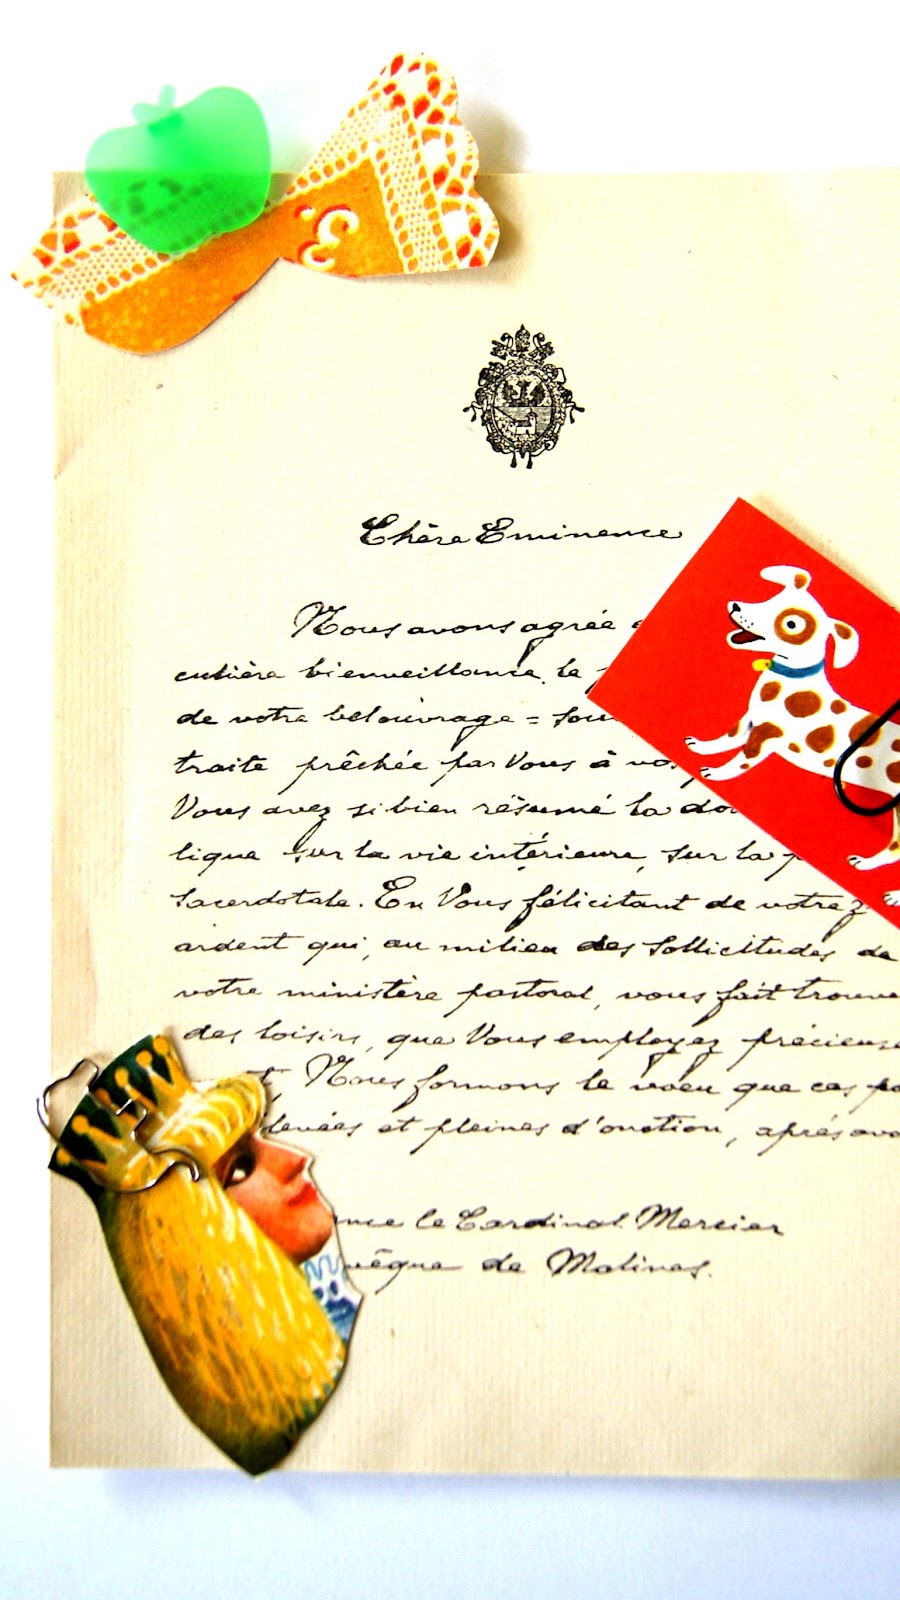 E
Chère Eminence
Nous avons agréé
culière bienveillance, le
de votre bel ouvrage = 
traite prêchée par Vous à vos
Vous avez si bien résumé la
lique sur la vie intérieure, sur la
sacerdotale. En Vous félicitant de votre z
ardent qui, au milieu des sollicitudes de
votre ministère pastoral, vous fait trouve
des loisirs, que Vous employez précieuse
t, Nous formons le voeu que ces pa
levées et pleines d'onction, après avo
nce le Cardinal Mercier
vêque de Malines.